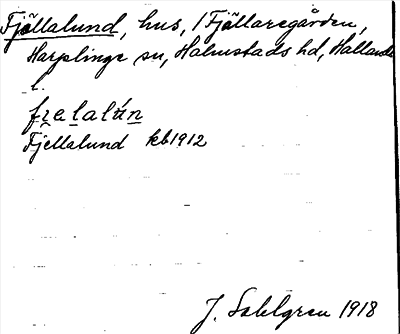 Fjällalund, hus, 1 Fjällaregården,
Harplinge sn, Halmstads hd, Hallands
l.
Fjellalund kb 1912
J. Sahlgren 1918